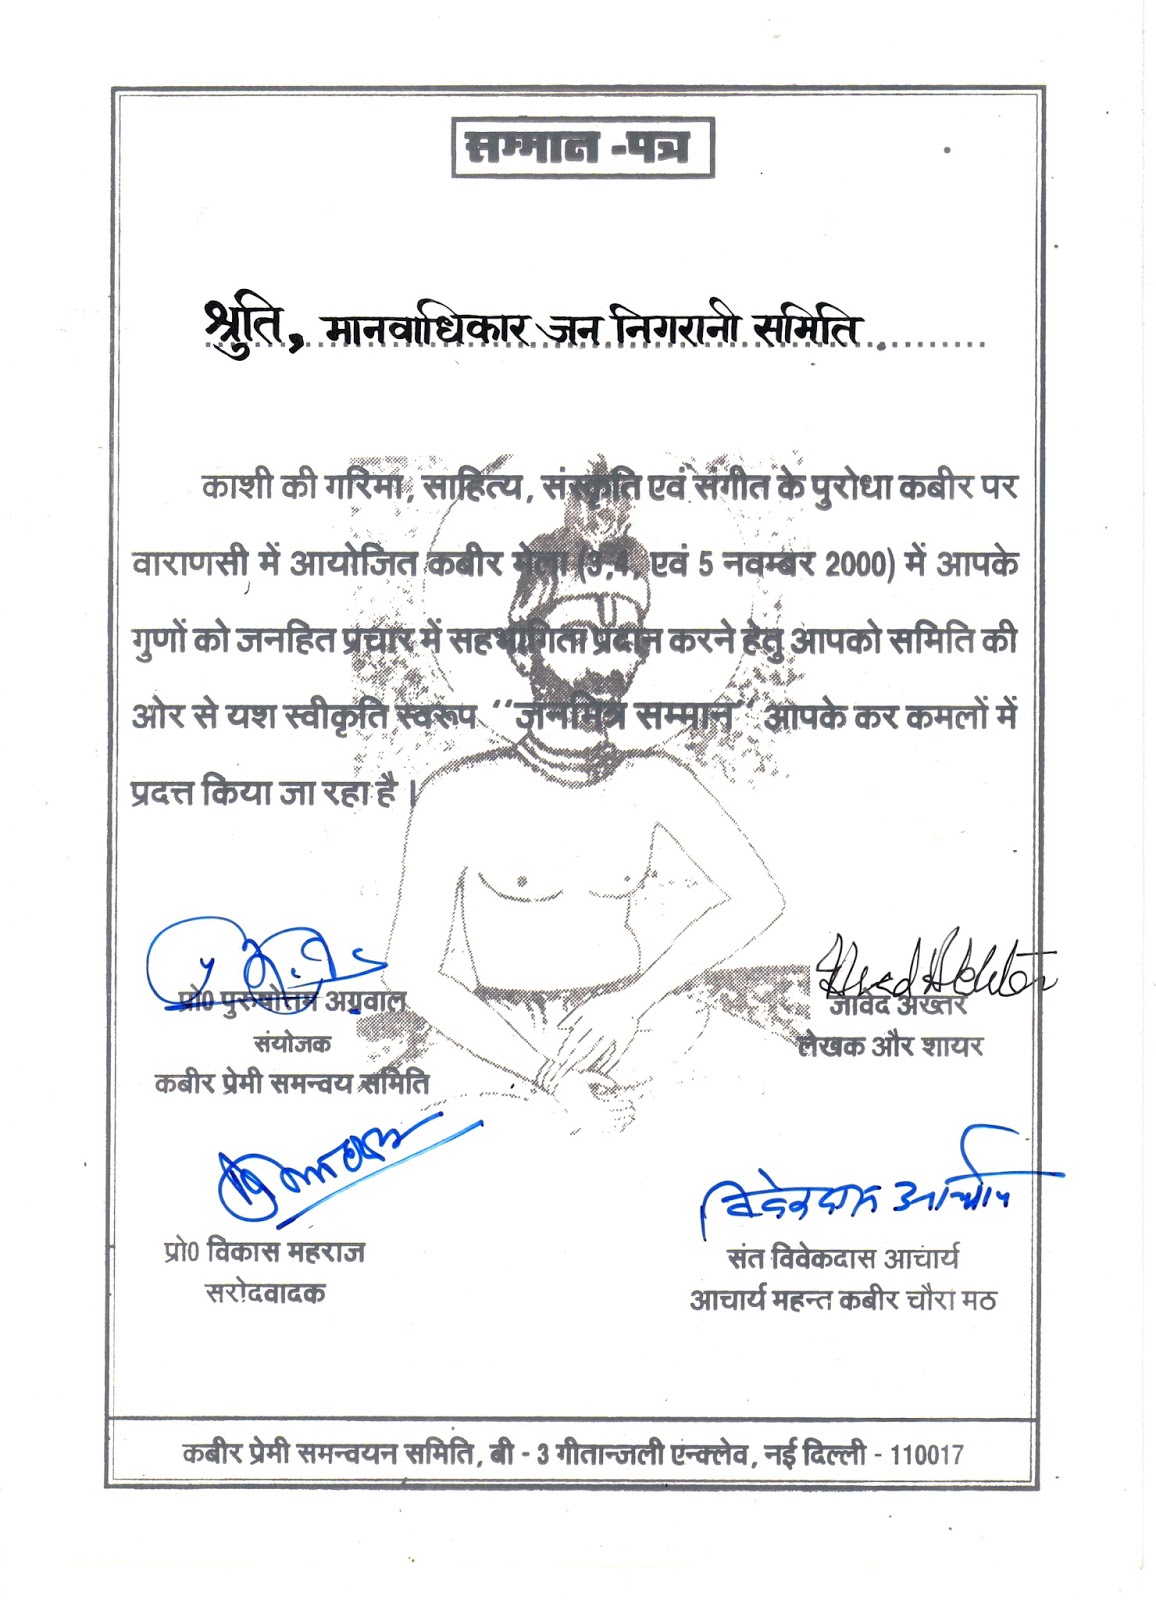 सम्मान -पत्र
श्रुति, मानवाधिकार जन निगरानी समिति .
काशी की गरिमा, साहित्य, संस्कृति एवं संगीत के पुरोधा कबीर पर
वाराणसी में आयोजित कबीर मेला (3,4, एवं 5 नवम्बर 2000) में आपके
गुणों को जनहित प्रचार में सहभागिता प्रदान करने हेतु आपको समिति की
ओर से यश स्वीकृति स्वरूप ''जनमित्र सम्मान'' आपके कर कमलों में
प्रदत्त किया जा रहा है ।
प्रो0 पुरुषोत्तम अग्रवाल
संयोजक
कबीर प्रेमी समन्वय समिति
Javed Akhtar
जावेद अख्तर
लेखक और शायर
प्रो0 विकास महराज
सरोदवादक
विवेकदास आचार्य
संत विवेकदास आचार्य
आचार्य महन्त कबीर चौरा मठ
कबीर प्रेमी समन्वयन समिति, बी - 3 गीतान्जली एन्क्लेव, नई दिल्ली - 110017